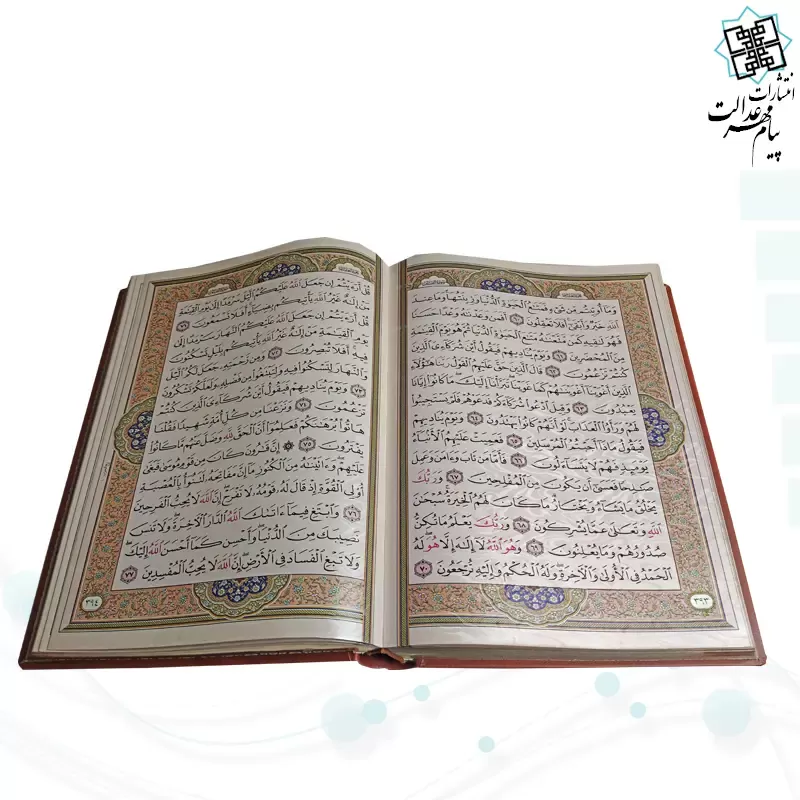 انتشارات
پیام مهر عدالت
وَمَآ أُوتِيتُم مِّن شَىْءٍ فَمَتَٰعُ ٱلْحَيَوٰةِ ٱلدُّنْيَا وَزِينَتُهَا وَمَا عِندَ
ٱللَّهِ خَيْرٌ وَأَبْقَىٰٓ أَفَلَا تَعْقِلُونَ ٦٠ أَفَمَن وَعَدْنَٰهُ وَعْدًا حَسَنًا
فَهُوَ لَٰقِيهِ كَمَن مَّتَّعْنَٰهُ مَتَٰعَ ٱلْحَيَوٰةِ ٱلدُّنْيَا ثُمَّ هُوَ يَوْمَ ٱلْقِيَٰمَةِ
مِنَ ٱلْمُحْضَرِينَ ٦١ وَيَوْمَ يُنَادِيهِمْ فَيَقُولُ أَيْنَ شُرَكَآءِىَ ٱلَّذِينَ
كُنتُمْ تَزْعُمُونَ ٦٢ قَالَ ٱلَّذِينَ حَقَّ عَلَيْهِمُ ٱلْقَوْلُ رَبَّنَا هَٰٓؤُلَآءِ
ٱلَّذِينَ أَغْوَيْنَآ أَغْوَيْنَٰهُمْ كَمَا غَوَيْنَا تَبَرَّأْنَآ إِلَيْكَ مَا كَانُوٓا۟ إِيَّانَا
يَعْبُدُونَ ٦٣ وَقِيلَ ٱدْعُوا۟ شُرَكَآءَكُمْ فَدَعَوْهُمْ فَلَمْ يَسْتَجِيبُوا۟
لَهُمْ وَرَأَوُا۟ ٱلْعَذَابَ لَوْ أَنَّهُمْ كَانُوا۟ يَهْتَدُونَ ٦٤ وَيَوْمَ يُنَادِيهِمْ
فَيَقُولُ مَاذَآ أَجَبْتُمُ ٱلْمُرْسَلِينَ ٦٥ فَعَمِيَتْ عَلَيْهِمُ ٱلْأَنۢبَآءُ
يَوْمَئِذٍ فَهُمْ لَا يَتَسَآءَلُونَ ٦٦ فَأَمَّا مَن تَابَ وَءَامَنَ وَعَمِلَ
صَٰلِحًا فَعَسَىٰٓ أَن يَكُونَ مِنَ ٱلْمُفْلِحِينَ ٦٧ وَرَبُّكَ
يَخْلُقُ مَا يَشَآءُ وَيَخْتَارُ مَا كَانَ لَهُمُ ٱلْخِيَرَةُ سُبْحَٰنَ
ٱللَّهِ وَتَعَٰلَىٰ عَمَّا يُشْرِكُونَ ٦٨ وَرَبُّكَ يَعْلَمُ مَا تُكِنُّ
صُدُورُهُمْ وَمَا يُعْلِنُونَ ٦٩ وَهُوَ ٱللَّهُ لَآ إِلَٰهَ إِلَّا هُوَ لَهُ
ٱلْحَمْدُ فِى ٱلْأُولَىٰ وَٱلْءَاخِرَةِ وَلَهُ ٱلْحُكْمُ وَإِلَيْهِ تُرْجَعُونَ ٧٠
٣٩٣
قُلْ أَرَءَيْتُمْ إِن جَعَلَ ٱللَّهُ عَلَيْكُمُ ٱلَّيْلَ سَرْمَدًا إِلَىٰ يَوْمِ ٱلْقِيَٰمَةِ
مَنْ إِلَٰهٌ غَيْرُ ٱللَّهِ يَأْتِيكُم بِضِيَآءٍ أَفَلَا تَسْمَعُونَ ٧١
قُلْ أَرَءَيْتُمْ إِن جَعَلَ ٱللَّهُ عَلَيْكُمُ ٱلنَّهَارَ سَرْمَدًا إِلَىٰ
يَوْمِ ٱلْقِيَٰمَةِ مَنْ إِلَٰهٌ غَيْرُ ٱللَّهِ يَأْتِيكُم بِلَيْلٍ تَسْكُنُونَ
فِيهِ أَفَلَا تُبْصِرُونَ ٧٢ وَمِن رَّحْمَتِهِۦ جَعَلَ لَكُمُ ٱلَّيْلَ
وَٱلنَّهَارَ لِتَسْكُنُوا۟ فِيهِ وَلِتَبْتَغُوا۟ مِن فَضْلِهِۦ وَلَعَلَّكُمْ تَشْكُرُونَ
٧٣ وَيَوْمَ يُنَادِيهِمْ فَيَقُولُ أَيْنَ شُرَكَآءِىَ ٱلَّذِينَ كُنتُمْ
تَزْعُمُونَ ٧٤ وَنَزَعْنَا مِن كُلِّ أُمَّةٍ شَهِيدًا فَقُلْنَا
هَاتُوا۟ بُرْهَٰنَكُمْ فَعَلِمُوٓا۟ أَنَّ ٱلْحَقَّ لِلَّهِ وَضَلَّ عَنْهُم مَّا كَانُوا۟
يَفْتَرُونَ ٧٥ ۞ إِنَّ قَٰرُونَ كَانَ مِن قَوْمِ مُوسَىٰ فَبَغَىٰ
عَلَيْهِمْ وَءَاتَيْنَٰهُ مِنَ ٱلْكُنُوزِ مَآ إِنَّ مَفَاتِحَهُۥ لَتَنُوٓأُ بِٱلْعُصْبَةِ
أُو۟لِى ٱلْقُوَّةِ إِذْ قَالَ لَهُۥ قَوْمُهُۥ لَا تَفْرَحْ إِنَّ ٱللَّهَ لَا يُحِبُّ ٱلْفَرِحِينَ
٧٦ وَٱبْتَغِ فِيمَآ ءَاتَىٰكَ ٱللَّهُ ٱلدَّارَ ٱلْءَاخِرَةَ وَلَا تَنسَ
نَصِيبَكَ مِنَ ٱلدُّنْيَا وَأَحْسِن كَمَآ أَحْسَنَ ٱللَّهُ إِلَيْكَ
وَلَا تَبْغِ ٱلْفَسَادَ فِى ٱلْأَرْضِ إِنَّ ٱللَّهَ لَا يُحِبُّ ٱلْمُفْسِدِينَ ٧٧
٣٩٤